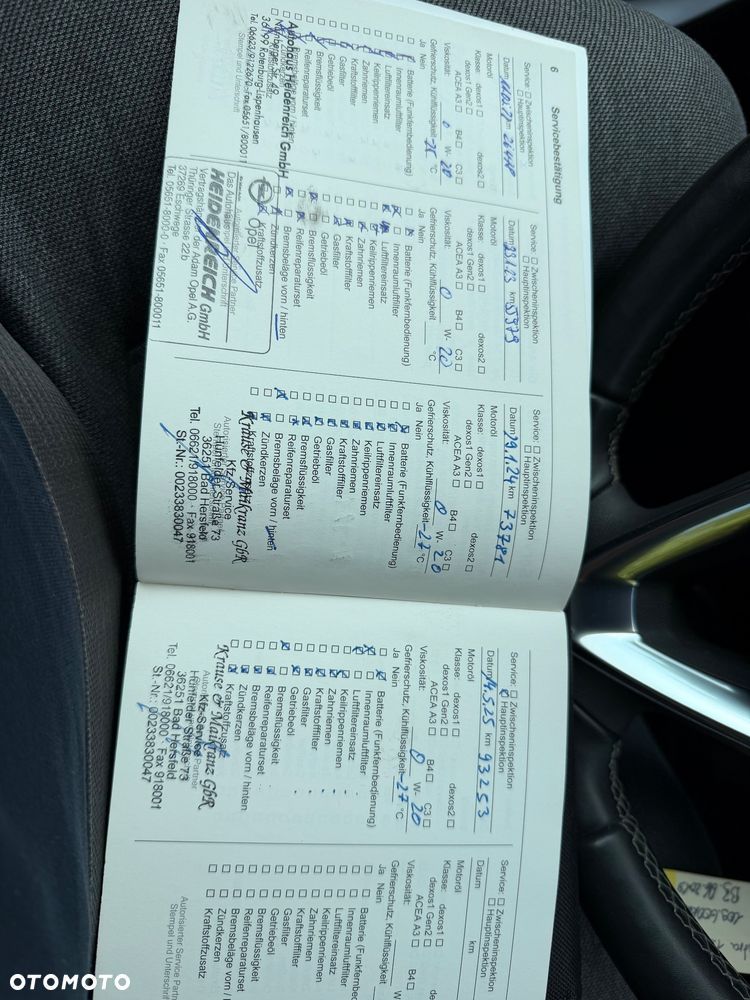 6 Servicebestätigung
Service: ☐ Zwischeninspektion
☐ Hauptinspektion
Datum km
Motoröl
Klasse: dexos1 ☐ dexos2 ☐
dexos1 Gen2 ☐
ACEA A3 ☐ B4 ☐ C3 ☐
Viskosität: 0 W- 20
Gefrierschutz, Kühlflüssigkeit °C
Ja Nein
Batterie (Funkfernbedienung)
Innenraumluftfilter
Luftfiltereinsatz
Keilrippenriemen
Zahnriemen
Kraftstofffilter
Gasfilter
Getriebeöl
Bremsflüssigkeit
Reifenreparaturset
Autohaus Heidenreich GmbH
Nürnberger Str. 49
36199 Rotenburg-Lispenhausen
Stempel und Unterschrift
Service: ☐ Zwischeninspektion
☐ Hauptinspektion
Datum 23.1.23 km 55979
Motoröl
Klasse: dexos1 ☐ dexos2 ☐
dexos1 Gen2 ☐
ACEA A3 ☐ B4 ☐ C3 ☐
Viskosität: 0 W- 20
Gefrierschutz, Kühlflüssigkeit °C
Ja Nein
Batterie (Funkfernbedienung)
Innenraumluftfilter
Luftfiltereinsatz
Keilrippenriemen
Zahnriemen
Kraftstofffilter
Gasfilter
Getriebeöl
Bremsflüssigkeit
Reifenreparaturset
Bremsbeläge vorn / hinten
Zündkerzen
Kraftstoffzusatz
Opel
Das Autohaus
HEIDENREICH GmbH
Vertragshändler der Adam Opel A.G.
Thüringer Strasse 22b
37269 Eschwege
Tel. 05651-8000-0 · Fax 05651-800011
Service: ☐ Zwischeninspektion
☐ Hauptinspektion
Datum 29.1.24 km 73781
Motoröl
Klasse: dexos1 ☐ dexos2 ☐
dexos1 Gen2 ☐
ACEA A3 ☐ B4 ☐ C3 ☐
Viskosität: 0 W- 20
Gefrierschutz, Kühlflüssigkeit -27 °C
Ja Nein
Batterie (Funkfernbedienung)
Innenraumluftfilter
Luftfiltereinsatz
Keilrippenriemen
Zahnriemen
Kraftstofffilter
Gasfilter
Getriebeöl
Bremsflüssigkeit
Reifenreparaturset
Bremsbeläge vorn / hinten
Zündkerzen
Kraftstoffzusatz
Krause & Maikranz GbR
Kfz-Service
Hünfelder Straße 73
36251 Bad Hersfeld
Tel. 06621/918000 · Fax 918001
St.-Nr.: 00233830047
Service: ☐ Zwischeninspektion
Hauptinspektion
Datum 14.5.25 km 93253
Motoröl
Klasse: dexos1 ☐ dexos2 ☐
dexos1 Gen2 ☐
ACEA A3 ☐ B4 ☐ C3 ☐
Viskosität: 0 W- 20
Gefrierschutz, Kühlflüssigkeit -27 °C
Ja Nein
Batterie (Funkfernbedienung)
Innenraumluftfilter
Luftfiltereinsatz
Keilrippenriemen
Zahnriemen
Kraftstofffilter
Gasfilter
Getriebeöl
Bremsflüssigkeit
Reifenreparaturset
Bremsbeläge vorn / hinten
Zündkerzen
Kraftstoffzusatz
Krause & Maikranz GbR
Kfz-Service
Hünfelder Straße 73
36251 Bad Hersfeld
Tel. 06621/918000 · Fax 918001
St.-Nr.: 00233830047
Service: ☐ Zwischeninspektion
☐ Hauptinspektion
Datum km
Motoröl
Klasse: dexos1 ☐
dexos1 Gen2 ☐
ACEA A3 ☐ B4 ☐
Viskosität: W-
Gefrierschutz, Kühlflüssigkeit
Ja Nein
☐ ☐ Batterie (Funkfernbedienung)
☐ ☐ Innenraumluftfilter
☐ ☐ Luftfiltereinsatz
☐ ☐ Keilrippenriemen
☐ ☐ Zahnriemen
☐ ☐ Kraftstofffilter
☐ ☐ Gasfilter
☐ ☐ Getriebeöl
☐ ☐ Bremsflüssigkeit
☐ ☐ Reifenreparaturset
☐ ☐ Bremsbeläge vorn /
☐ ☐ Zündkerzen
☐ ☐ Kraftstoffzusatz
Autorisierter Service Part
Stempel und Unterschrif
OTOMOTO